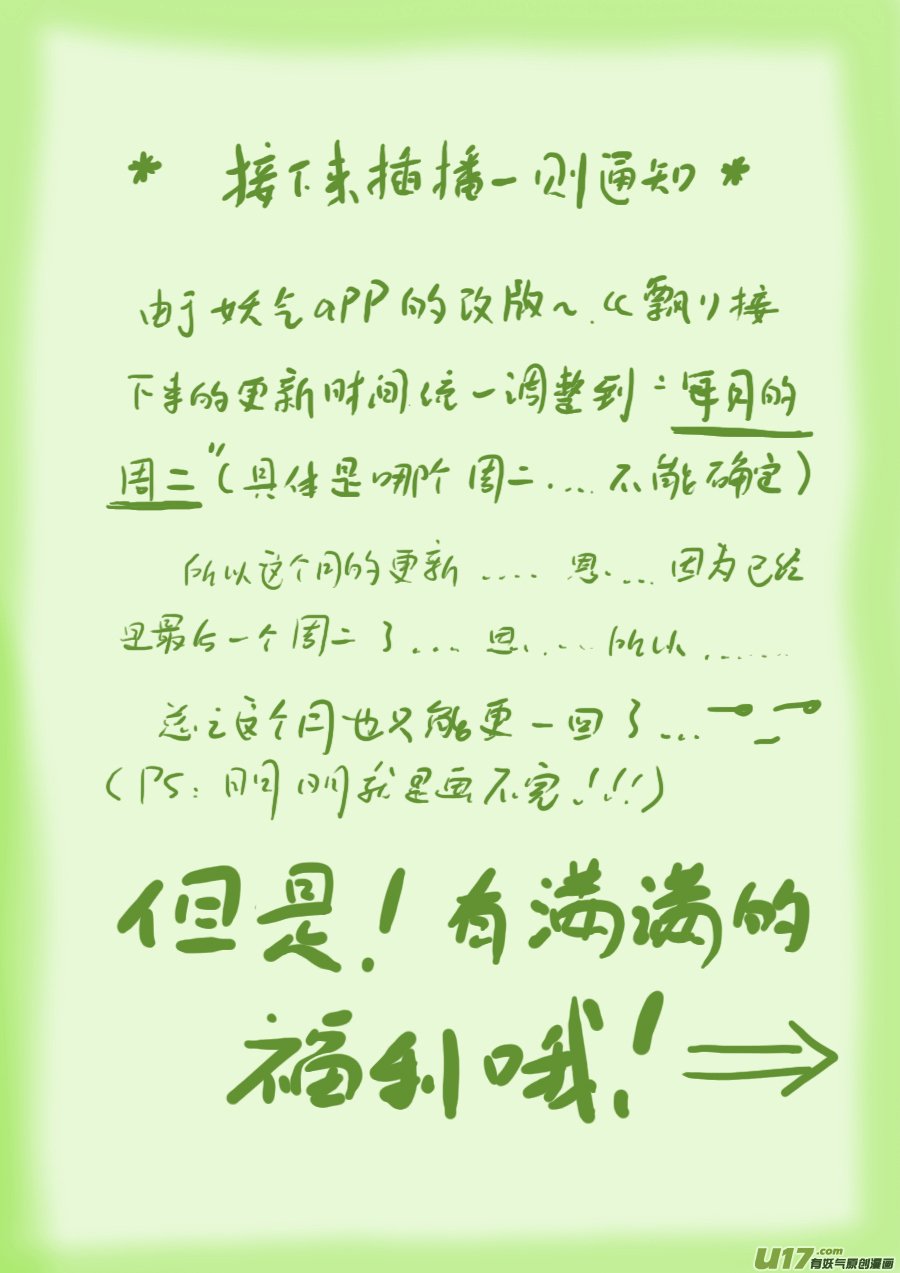 * 接下来插播一则通知 *
由于妖气app的改版~.《飘》接
下来的更新时间统一调整到“每月的
周二”(具体是哪个周二....不能确定)
所以这个月的更新.....恩....因为已经
是最后一个周二了....恩......所以.......
总之这个月也只能更一回了...
(PS:明明就是画不完!!!)
但是!有满满的
福利哦!
U17.com
有妖气原创漫画